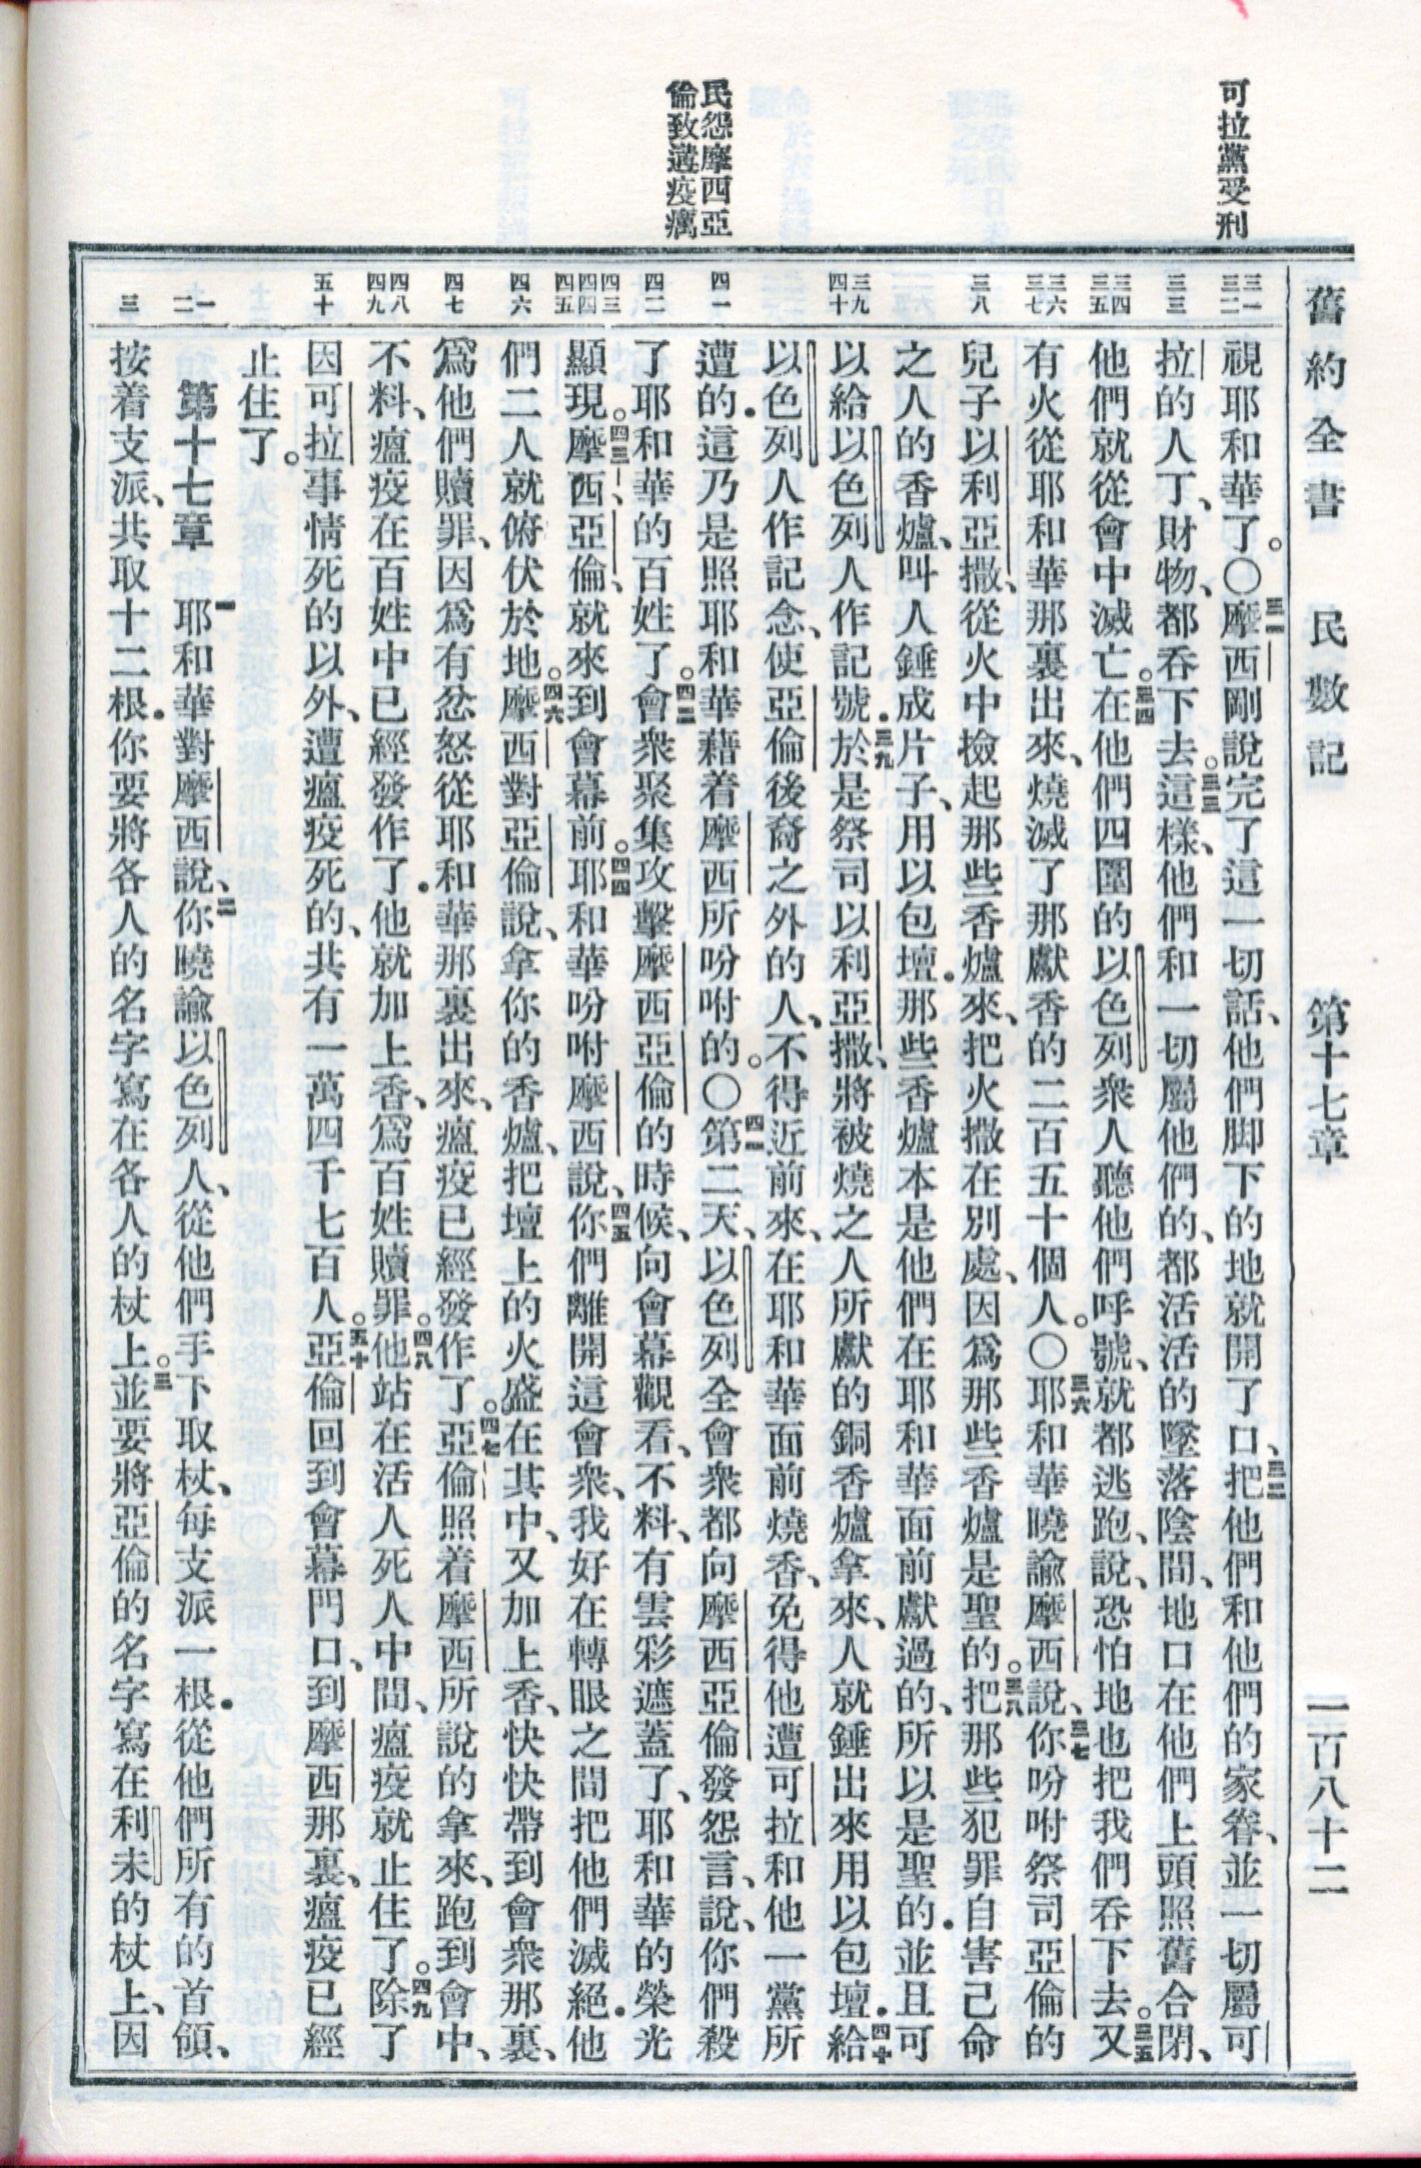 舊約全書 民數記 第十七章 一百八十二
可拉黨受刑
民怨摩西亞
倫致遘疫癘
三一
三二
三三
三四
三五
三六
三七
三八
三九
四十
四一
四二
四三
四四
四五
四六
四七
四八
四九
五十
一
二
三
視耶和華了。〇三一摩西剛說完了這一切話、他們脚下的地就開了口、三二把他們和他們的家眷、並一切屬可
拉的人丁、財物、都吞下去。三三這樣、他們和一切屬他們的、都活活的墜落陰間、地口在他們上頭照舊合閉、
他們就從會中滅亡。三四在他們四圍的以色列衆人聽他們呼號、就都逃跑、說、恐怕地也把我們吞下去。三五又
有火從耶和華那裏出來、燒滅了那獻香的二百五十個人。〇三六耶和華曉諭摩西說、三七你吩咐祭司亞倫的
兒子以利亞撒、從火中撿起那些香爐來、把火撒在別處、因爲那些香爐是聖的。三八把那些犯罪自害己命
之人的香爐、叫人錘成片子、用以包壇．那些香爐本是他們在耶和華面前獻過的、所以是聖的．並且可
以給以色列人作記號．三九於是祭司以利亞撒、將被燒之人所獻的銅香爐拿來、人就錘出來用以包壇．四十給
以色列人作記念、使亞倫後裔之外的人、不得近前來、在耶和華面前燒香、免得他遭可拉和他一黨所
遭的．這乃是照耶和華藉着摩西所吩咐的。〇四一第二天、以色列全會衆都向摩西亞倫發怨言、說、你們殺
了耶和華的百姓了。四二會衆聚集攻擊摩西亞倫的時候、向會幕觀看、不料、有雲彩遮蓋了、耶和華的榮光
顯現。四三摩西、亞倫、就來到會幕前。四四耶和華吩咐摩西說、四五你們離開這會衆、我好在轉眼之間把他們滅絕．他
們二人就俯伏於地。四六摩西對亞倫說、拿你的香爐、把壇上的火盛在其中、又加上香、快快帶到會衆那裏、
爲他們贖罪、因爲有忿怒從耶和華那裏出來、瘟疫已經發作了。四七亞倫照着摩西所說的拿來、跑到會中、
不料、瘟疫在百姓中已經發作了．他就加上香、爲百姓贖罪。四八他站在活人死人中間、瘟疫就止住了。四九除了
因可拉事情死的以外、遭瘟疫死的、共有一萬四千七百人。五十亞倫回到會幕門口、到摩西那裏、瘟疫已經
止住了。
第十七章 一耶和華對摩西說、二你曉諭以色列人、從他們手下取杖、每支派一根．從他們所有的首領、
按着支派、共取十二根．你要將各人的名字寫在各人的杖上。三並要將亞倫的名字寫在利未的杖上、因